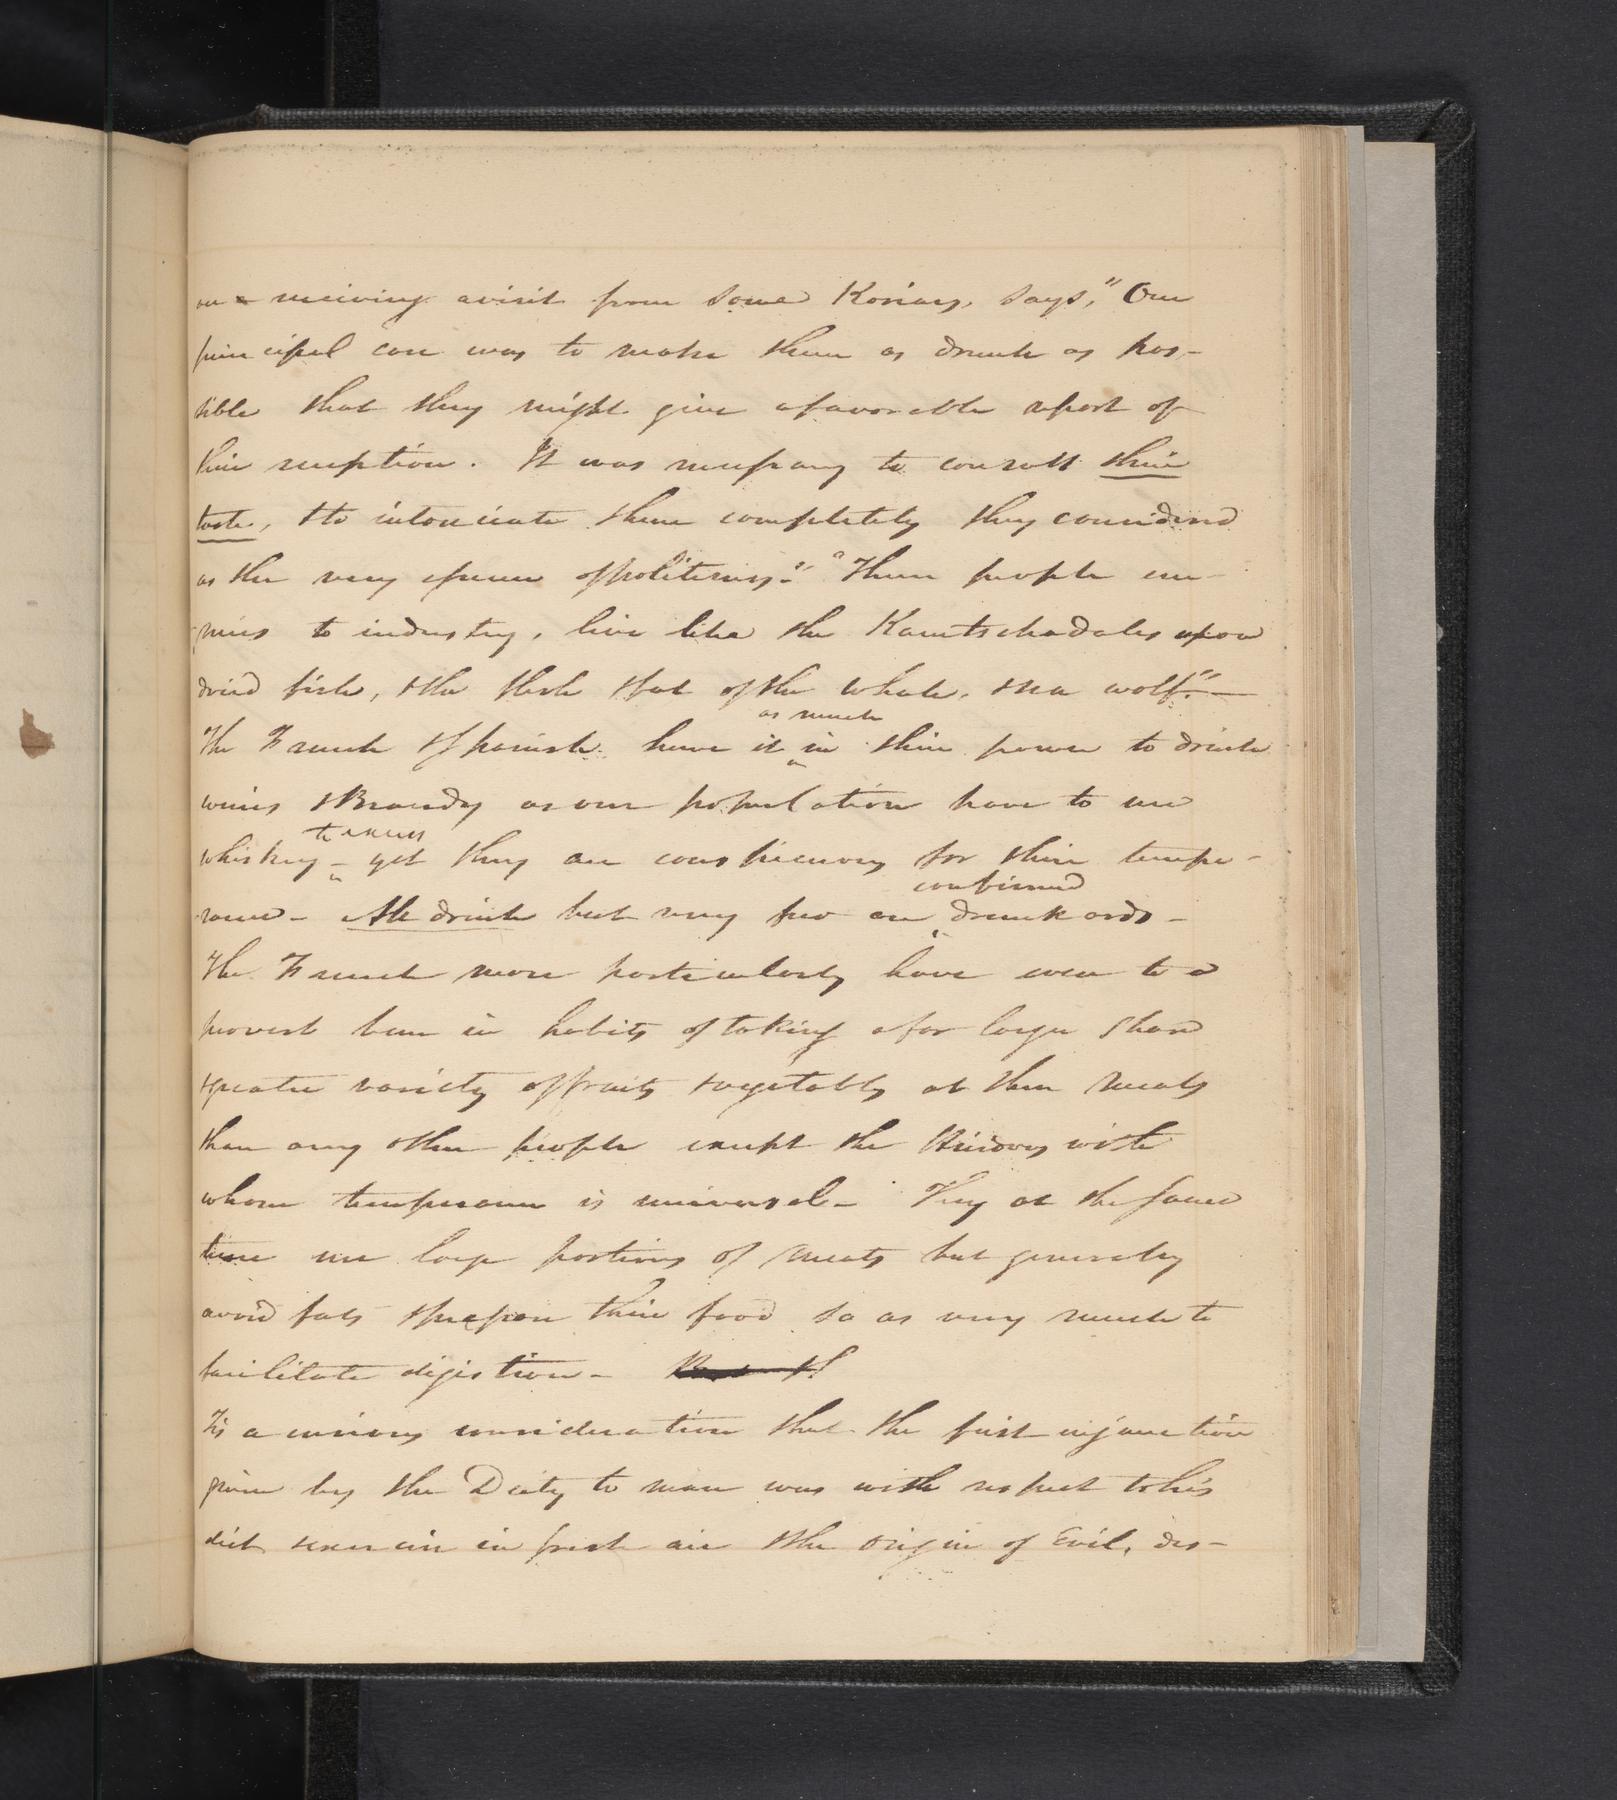 on receiving a visit from some Koriacs, says, "Our
principal care was to make them as drunk as pos-
sible that they might give a favorable report of
their reception. It was necessary to consult their
taste, & to intoxicate them completely they considered
as the very essence of politeness." "These people ene-
mies to industry, live like the Kamtschadales upon
dried fish, & the flesh & fat of the whale, & sea wolf." —
The French & Spanish have it as much in their power to drink
wines & Brandy as our population have to use
whiskey to excess – yet they are conspicuous for their tempe-
rance – All drink but very few are confirmed drunkards –
The French more particularly have even to a
proverb been in habits of taking a far larger share
& greater variety of fruits & vegetables at their meals
than any other people except the Hindoos with
whom temperance is universal – They at the same
time use large portions of meats but generaly
avoid fats & prepare their food so as very much to
facilitate digestion –
Tis a curious consideration that the first injunction
given by the Deity to man was with respect to his
diet & exercise in fresh air & the origin of Evil, des-